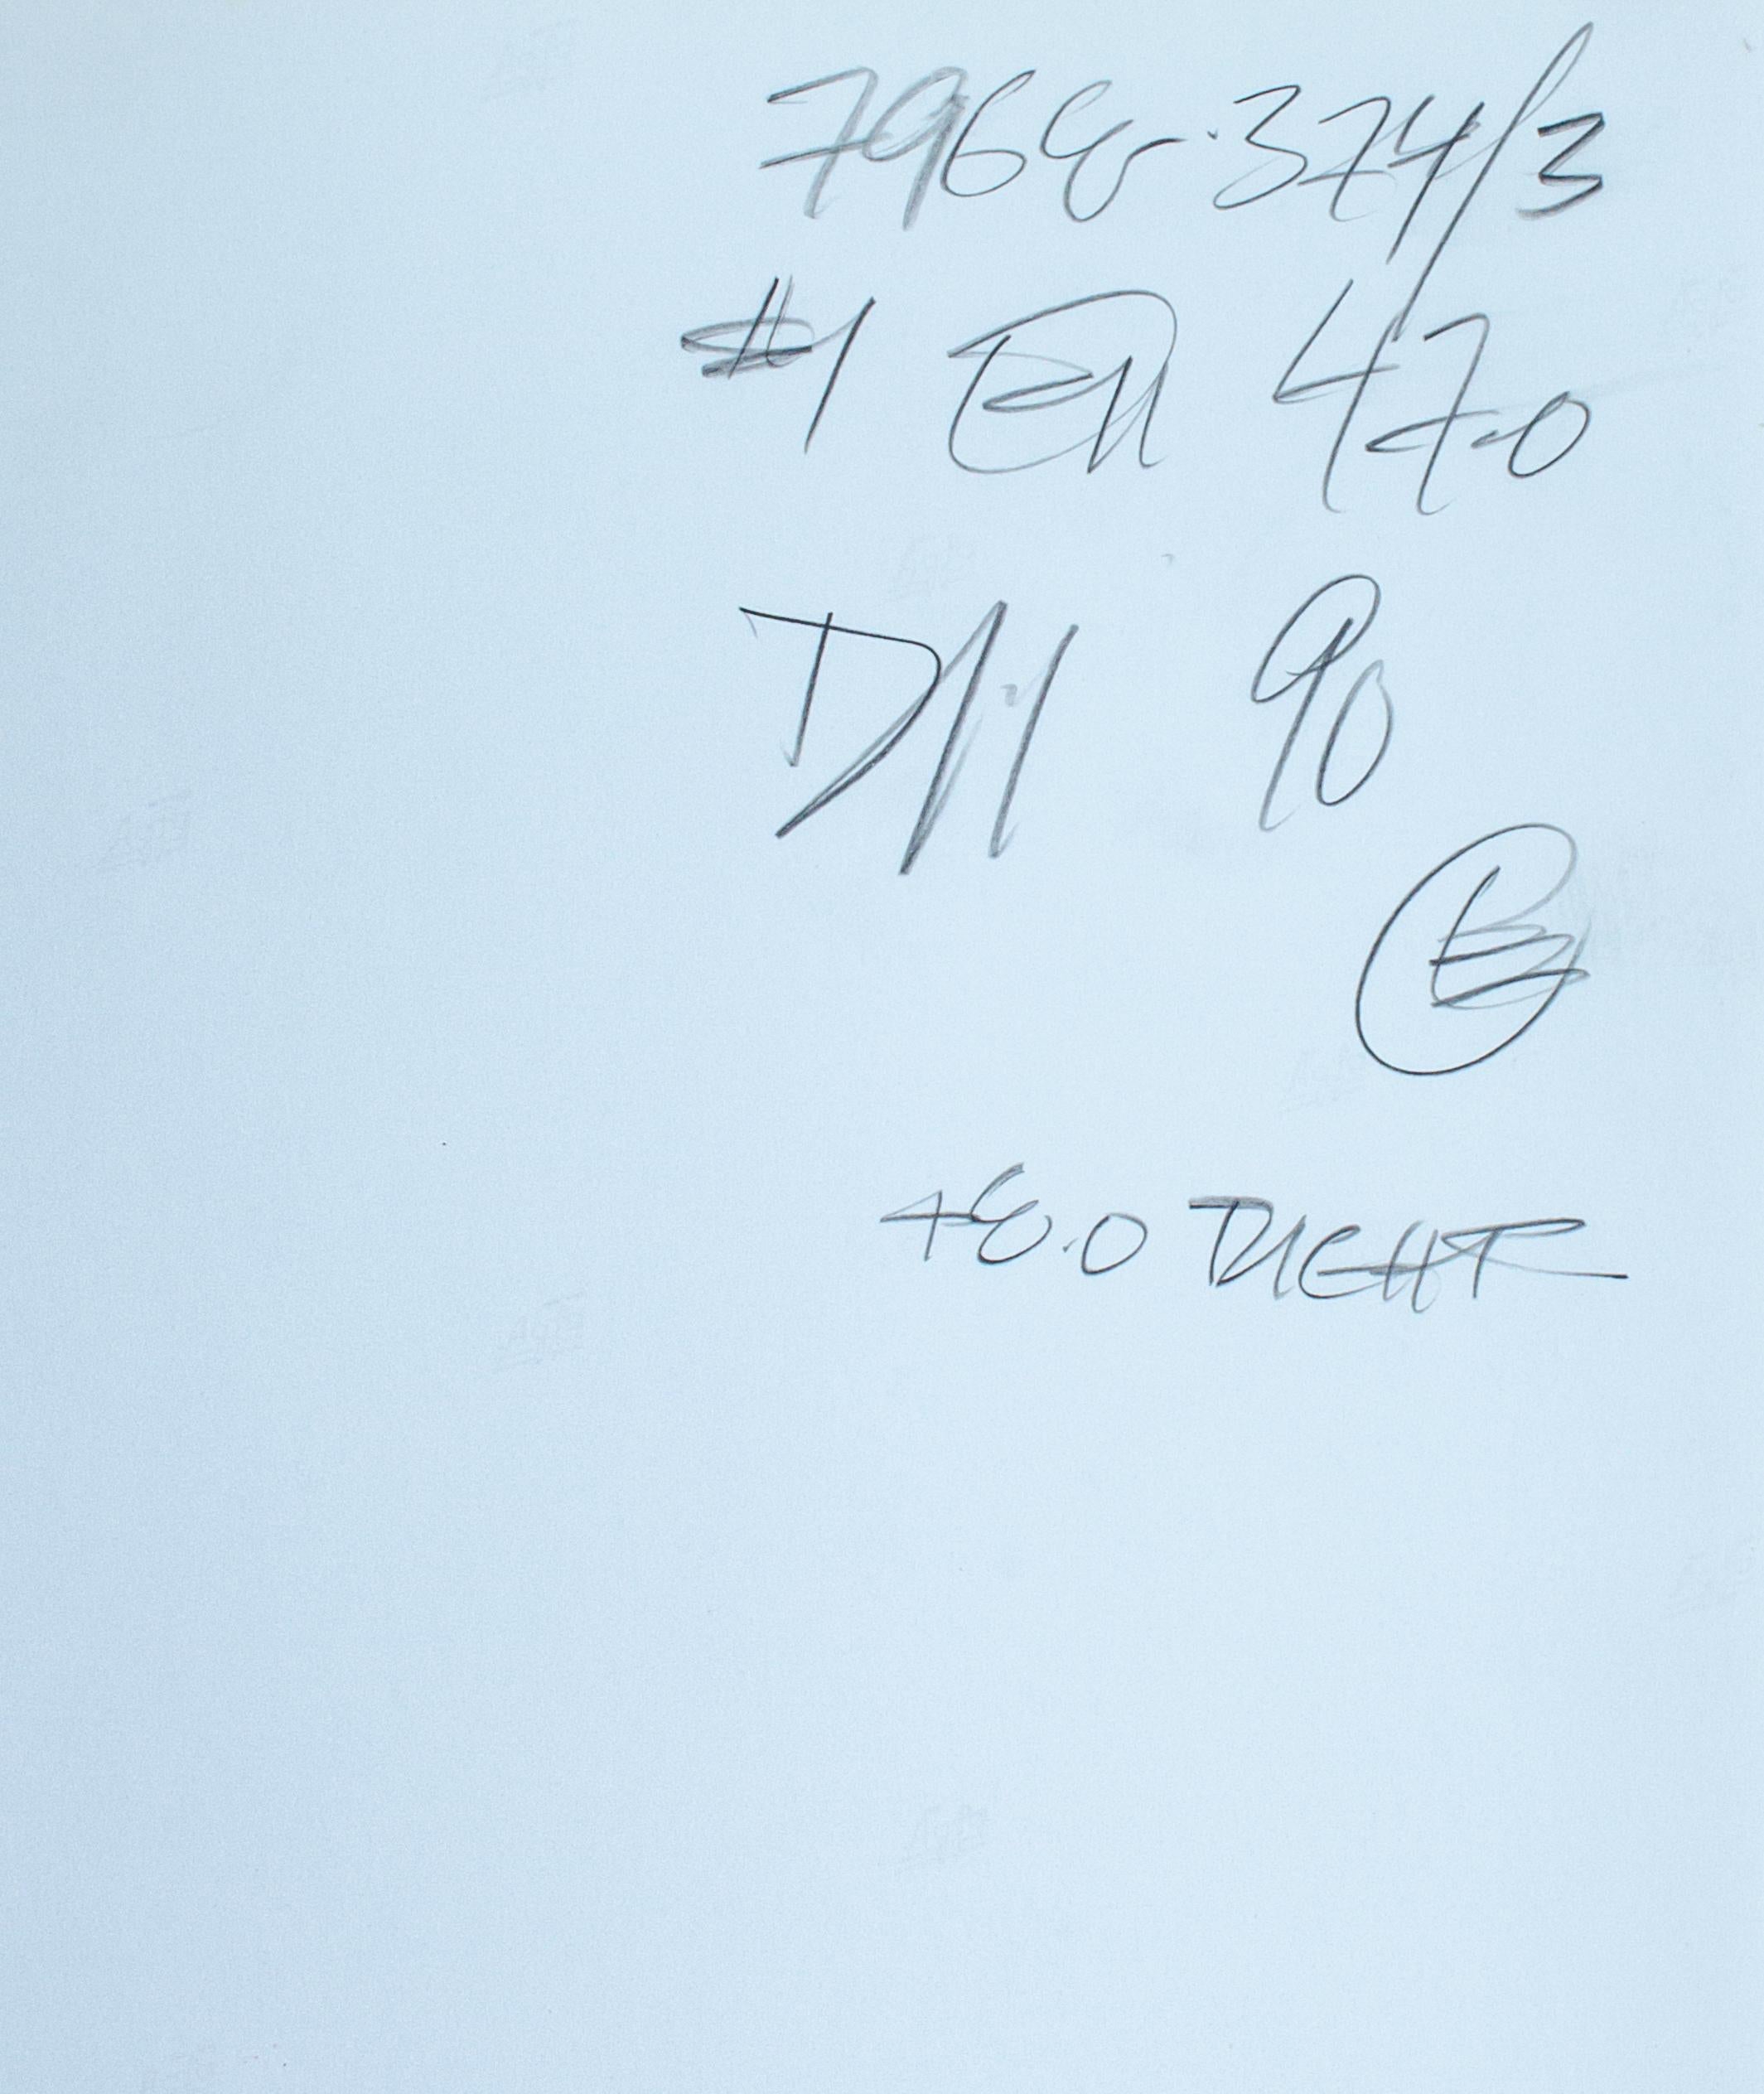 7968.374/3
#1 EN 47.0
DH 90
B
48.0 DICHT